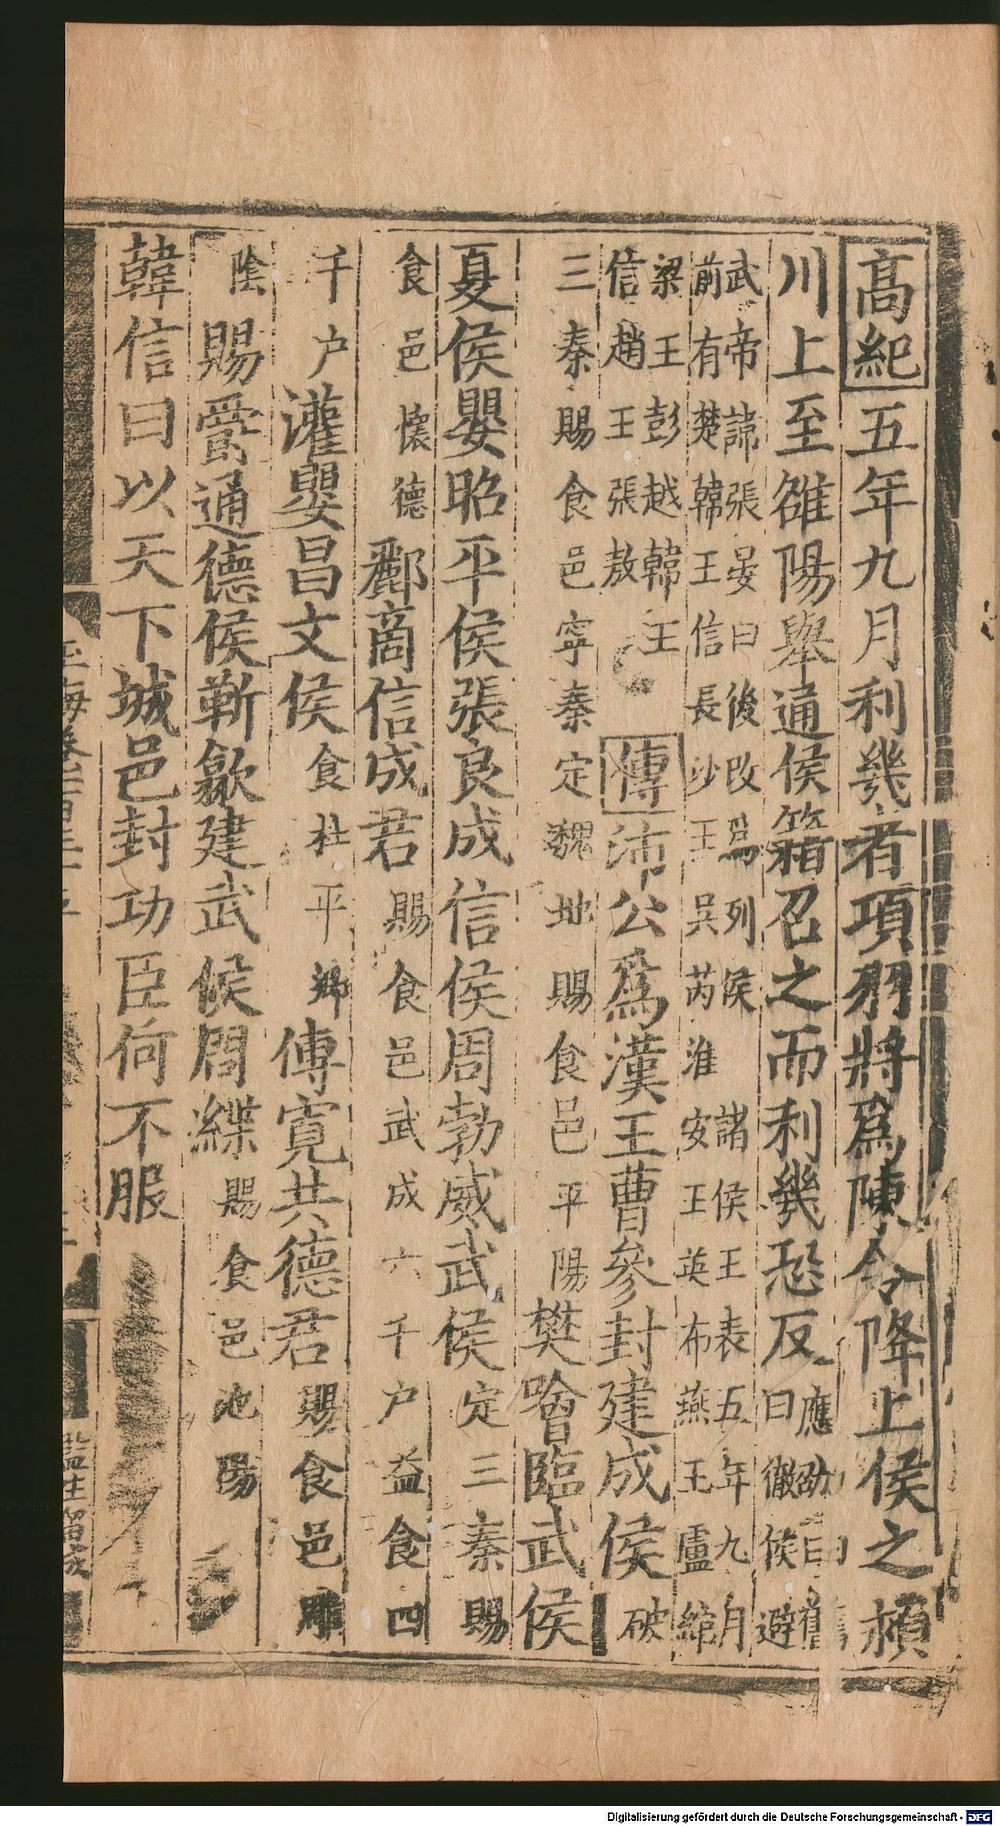 高紀五年九月利幾者項羽將爲陳令降上侯之潁
川上至雒陽舉通侯籍召之而利幾恐反
應劭曰舊
曰徹侯避
武帝諱張晏曰後改爲列侯 諸侯王表五年九月
前有楚韓王信長沙王吳芮淮安王英布燕王盧綰
梁王彭越韓王
信趙王張敖
傳沛公爲漢王曹參封建成侯破
三秦賜食邑寧秦定魏地賜食邑平陽樊噲臨武侯
夏侯嬰昭平侯張良成信侯周勃威武侯定三秦賜
食邑懷德酈商信成君賜食邑武成六千户益食四
千户灌嬰昌文侯食杜平鄉傅寬共德君賜食邑雕
陰賜爵通德侯靳歙建武侯周緤賜食邑池陽
韓信曰以天下城邑封功臣何不服
玉海卷一百三十
監生
Digitalisierung gefördert durch die Deutsche Forschungsgemeinschaft - DFG